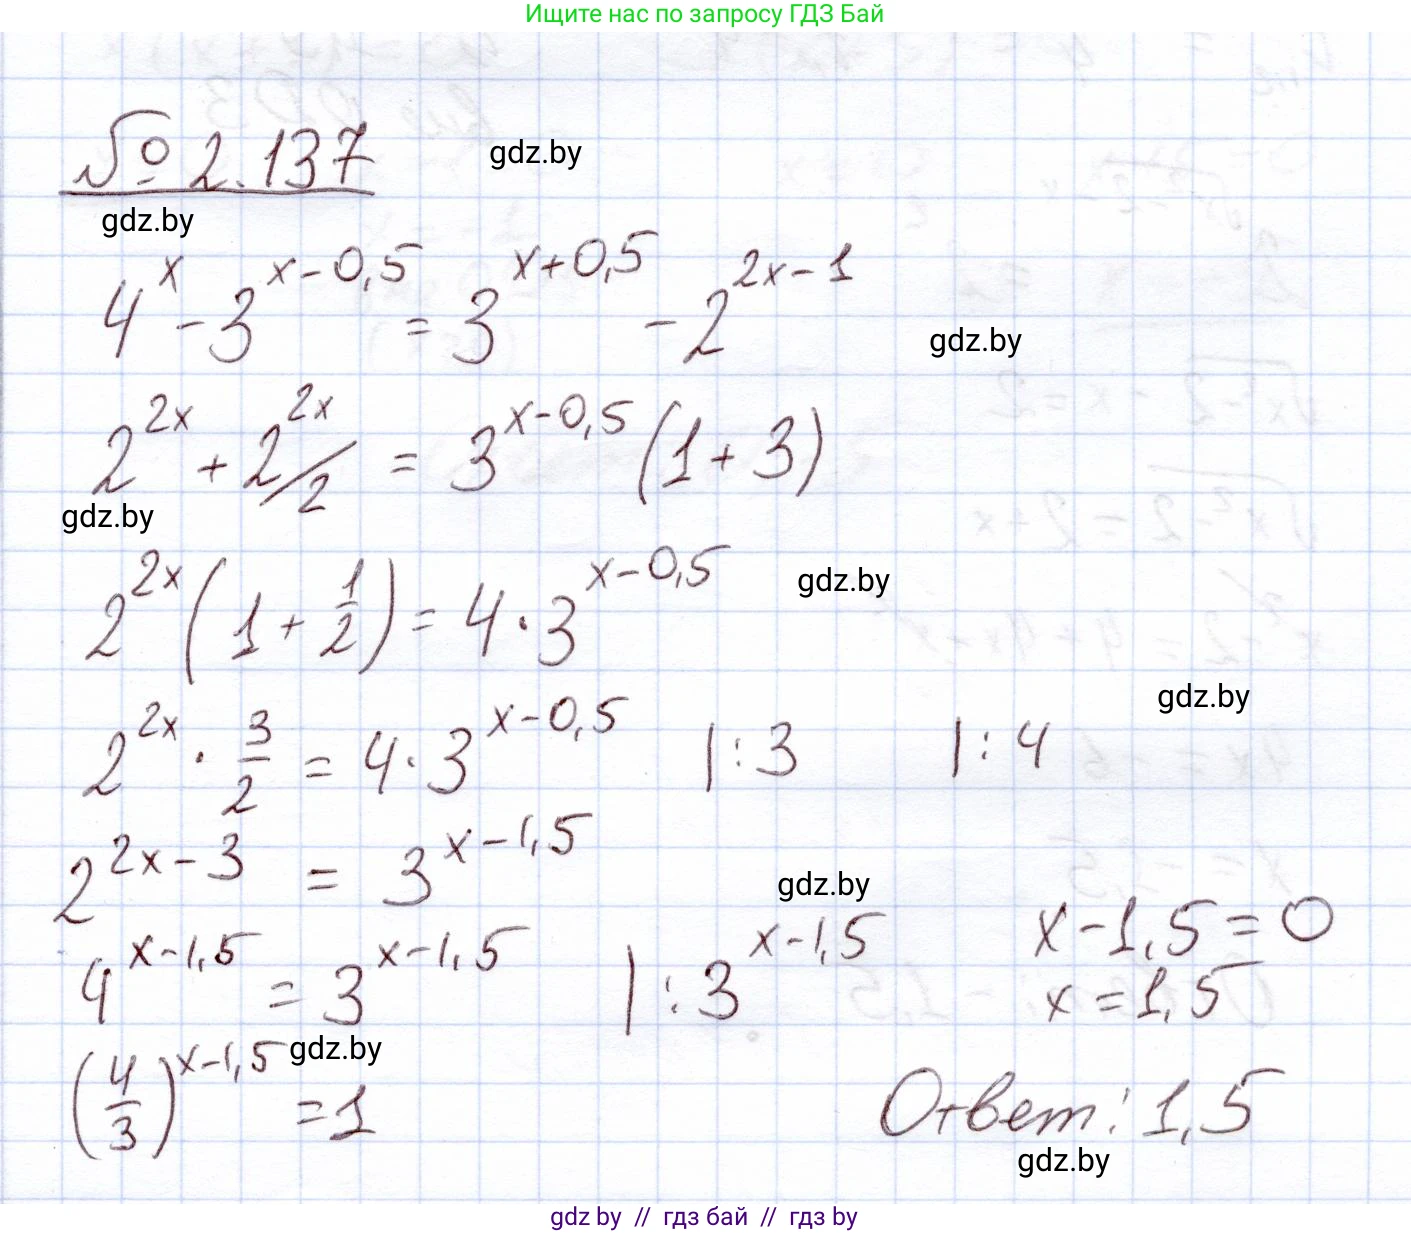 Ищите нас по запросу ГДЗ Бай
№ 2.137
gdz.by
gdz.by
4^x - 3^(x-0,5) = 3^(x+0,5) - 2^(2x-1)
gdz.by
2^(2x) + 2^(2x)/2 = 3^(x-0,5) (1+3)
gdz.by
2^(2x) (1 + 1/2) = 4·3^(x-0,5)
gdz.by
gdz.by
2^(2x) · 3/2 = 4·3^(x-0,5) |:3 |:4
2^(2x-3) = 3^(x-1,5)
gdz.by
4^(x-1,5) = 3^(x-1,5) |:3^(x-1,5)
(4/3)^(x-1,5) = 1
gdz.by
x-1,5=0
x=1,5
Ответ: 1,5
gdz.by
gdz by // гдз бай // гдз by